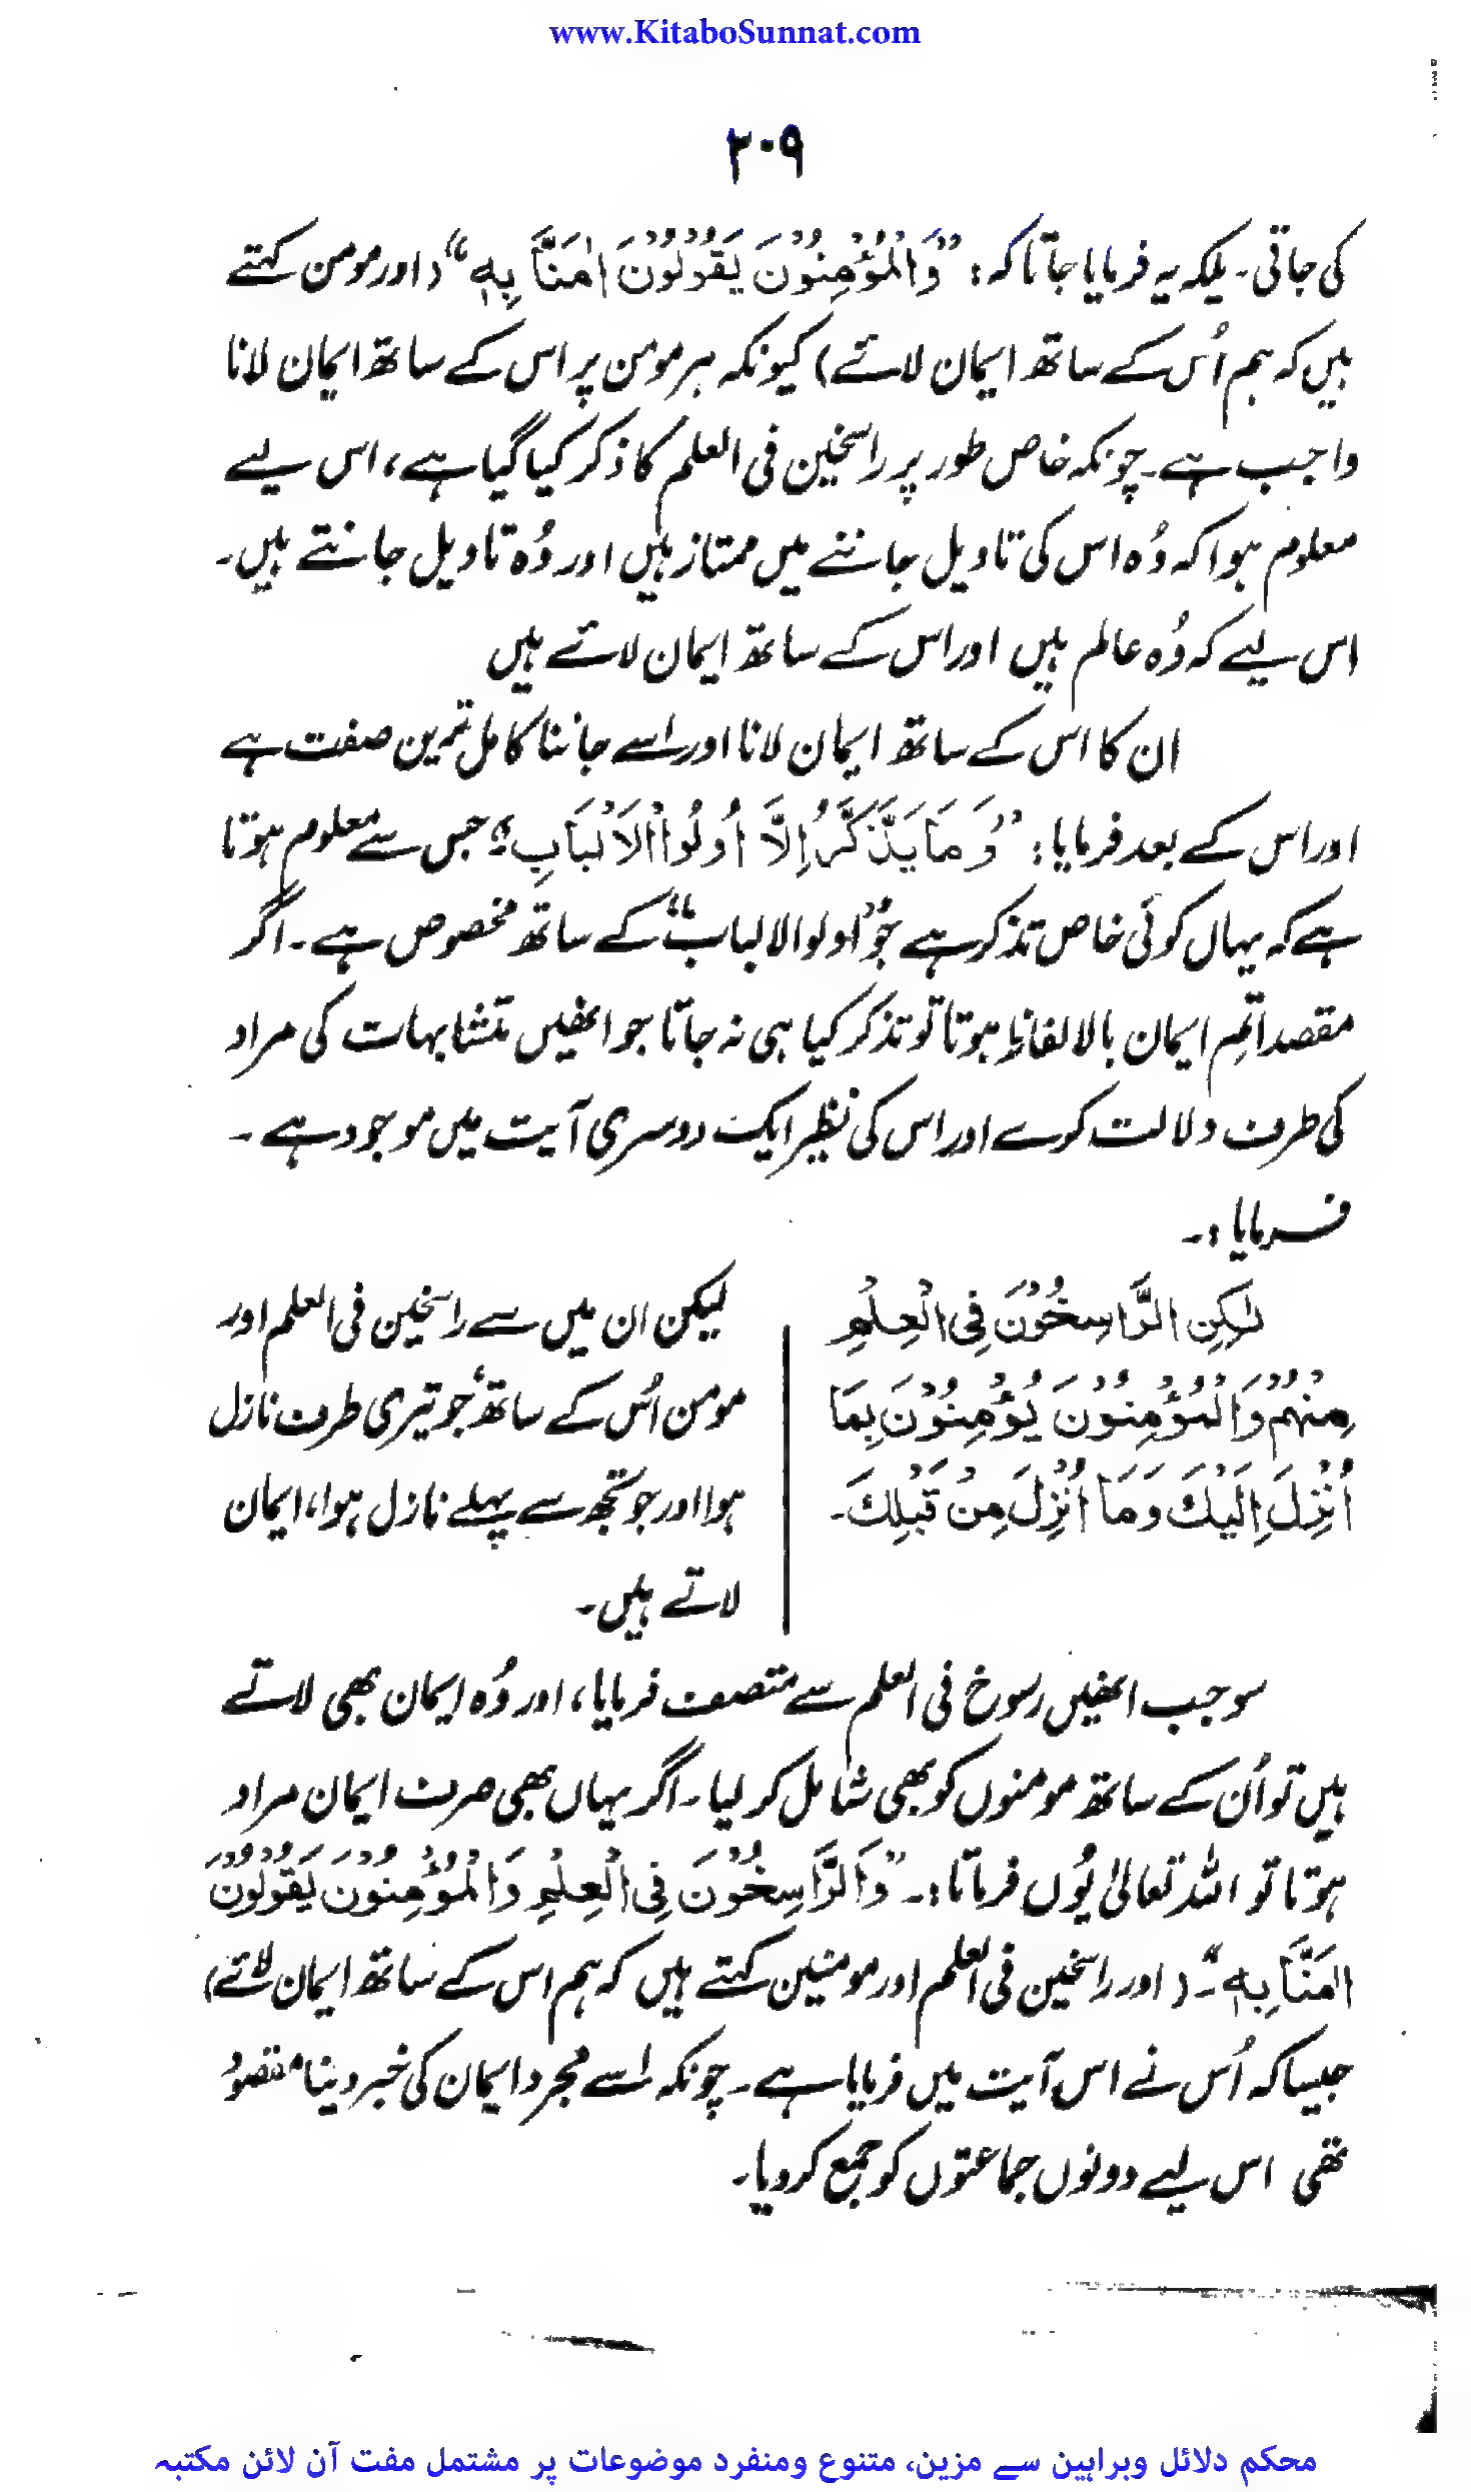 www.KitaboSunnat.com
۲۰۹
کی جاتی۔ بلکہ یہ فرمایا جاتا کہ: ”وَالْمُؤْمِنُوْنَ يَقُوْلُوْنَ اٰمَنَّا بِهٖ“ (اور مومن کہتے
ہیں کہ ہم اُس کے ساتھ ایمان لائے) کیونکہ ہر مومن پر اس کے ساتھ ایمان لانا
واجب ہے۔ چونکہ خاص طور پر راسخین فی العلم کا ذکر کیا گیا ہے، اس لیے
معلوم ہوا کہ وُہ اس کی تاویل جاننے میں ممتاز ہیں اور وُہ تاویل جانتے ہیں۔
اس لیے کہ وُہ عالم ہیں اور اس کے ساتھ ایمان لاتے ہیں
ان کا اس کے ساتھ ایمان لانا اور اسے جاننا کامل ترین صفت ہے
اور اس کے بعد فرمایا: ”وَمَا يَذَّكَّرُ اِلَّا اُولُوا الْاَلْبَابِ“ جس سے معلوم ہوتا
ہے کہ یہاں کوئی خاص تذکر ہے جو ”اولوالالباب“ کے ساتھ مخصوص ہے۔ اگر
مقصد ایمان بالالفاظ ہوتا تو تذکر کیا ہی نہ جاتا جو انھیں متشابہات کی مراد
کی طرف دلالت کرے اور اس کی نظیر ایک دوسری آیت میں موجود ہے۔
فرمایا:۔
لٰكِنِ الرَّاسِخُوْنَ فِى الْعِلْمِ
مِنْهُمْ وَالْمُؤْمِنُوْنَ يُؤْمِنُوْنَ بِمَا
اُنْزِلَ اِلَيْكَ وَمَا اُنْزِلَ مِنْ قَبْلِكَ۔
لیکن ان میں سے راسخین فی العلم اور
مومن اُس کے ساتھ جو تیری طرف نازل
ہوا اور جو تجھ سے پہلے نازل ہوا، ایمان
لاتے ہیں۔
سو جب انھیں رسوخ فی العلم سے متصف فرمایا، اور وُہ ایمان بھی لاتے
ہیں تو اُن کے ساتھ مومنوں کو بھی شامل کر لیا۔ اگر یہاں بھی صرف ایمان مراد
ہوتا تو اللہ تعالیٰ یُوں فرماتا:۔ ”وَالرَّاسِخُوْنَ فِى الْعِلْمِ وَالْمُؤْمِنُوْنَ يَقُوْلُوْنَ
اٰمَنَّا بِهٖ“۔ (اور راسخین فی العلم اور مومنین کہتے ہیں کہ ہم اس کے ساتھ ایمان لائے)
جیسا کہ اُس نے اس آیت میں فرمایا ہے۔ چونکہ اسے مجرد ایمان کی خبر دینا مقصود
تھی اس لیے دونوں جماعتوں کو جمع کر دیا۔
محکم دلائل وبراہین سے مزین، متنوع ومنفرد موضوعات پر مشتمل مفت آن لائن مکتبہ